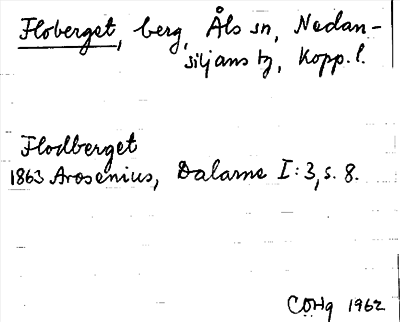 Floberget, berg, Åls sn, Nedan-
siljans tg, Kopp. l.
Flodberget
1863 Arosenius, Dalarne I:3, s. 8.
COHq 1962